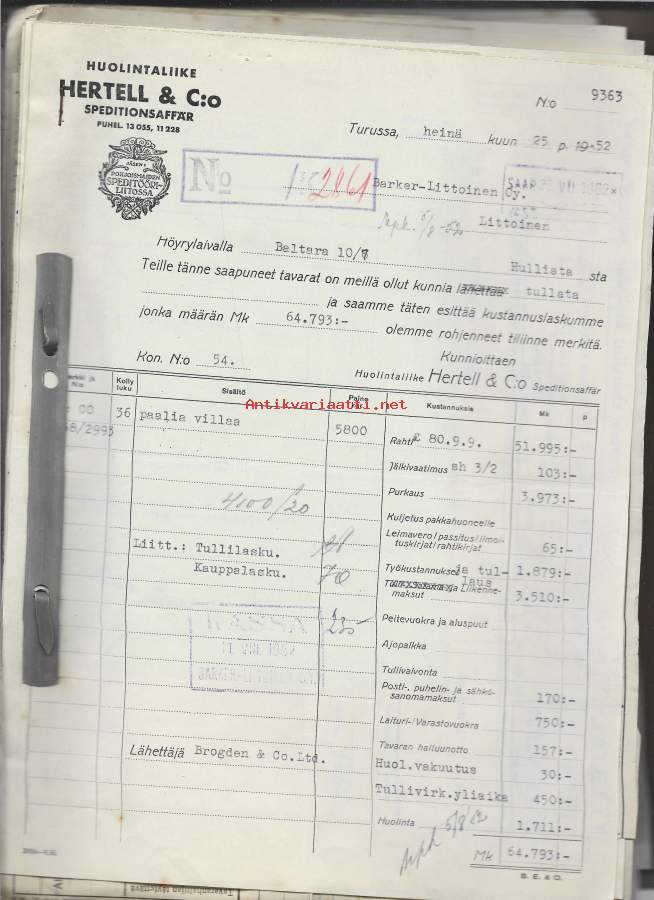 HUOLINTALIIKE
HERTELL & C:o
SPEDITIONSAFFÄR
PUHEL. 13 055, 11 228
JÄSEN
POHJOISMAIDEN
SPEDITÖÖRI-
LIITOSSA
N:o 9363
Turussa, heinä kuun 25 p. 1952
No 2861
Barker-Littoinen Oy.
Littoinen
Höyrylaivalla Baltara 10/7 Hullista sta
Teille tänne saapuneet tavarat on meillä ollut kunnia lähettää tullata
ja saamme täten esittää kustannuslaskumme
jonka määrän Mk 64.793:- olemme rohjenneet tiliinne merkitä.
Kunnioittaen
Kon. N:o 54.
Huolintaliike Hertell & C:o Speditionsaffär
Merkki ja N:o Kolly luku Sisältö Paino kg. Kustannuksia Mk p
00 36 paalia villaa 5800 Rahti £ 80.9.9. 51.995:-
8/2993
Antikvariaatti.net
Jälkivaatimus sh 3/2 103:-
Purkaus 3.973:-
4100/20
Kuljetus pakkahuoneelle
Leimavero/passitus/ilmoi-
tuskirjat/rahtikirjat 65:-
Liitt.: Tullilasku.
Kauppalasku. 70
Työkustannukset ja tul-
laus 1.879:-
ja Liikenne-
maksut 3.510:-
Peitevuokra ja aluspuut
235-
KASSA
11 VIII 1952
Ajopalkka
Tullivalvonta
Posti-, puhelin- ja sähkö-
sanomamaksut 170:-
Laituri-/Varastovuokra 750:-
Lähettäjä Brogden & Co.Ltd.
Tavaran haltuunotto 157:-
Huol.vakuutus 30:-
Tullivirk.yliaika 450:-
Huolinta 1.711:-
5/8 52
Mk 64.793:-
S. E. & O.